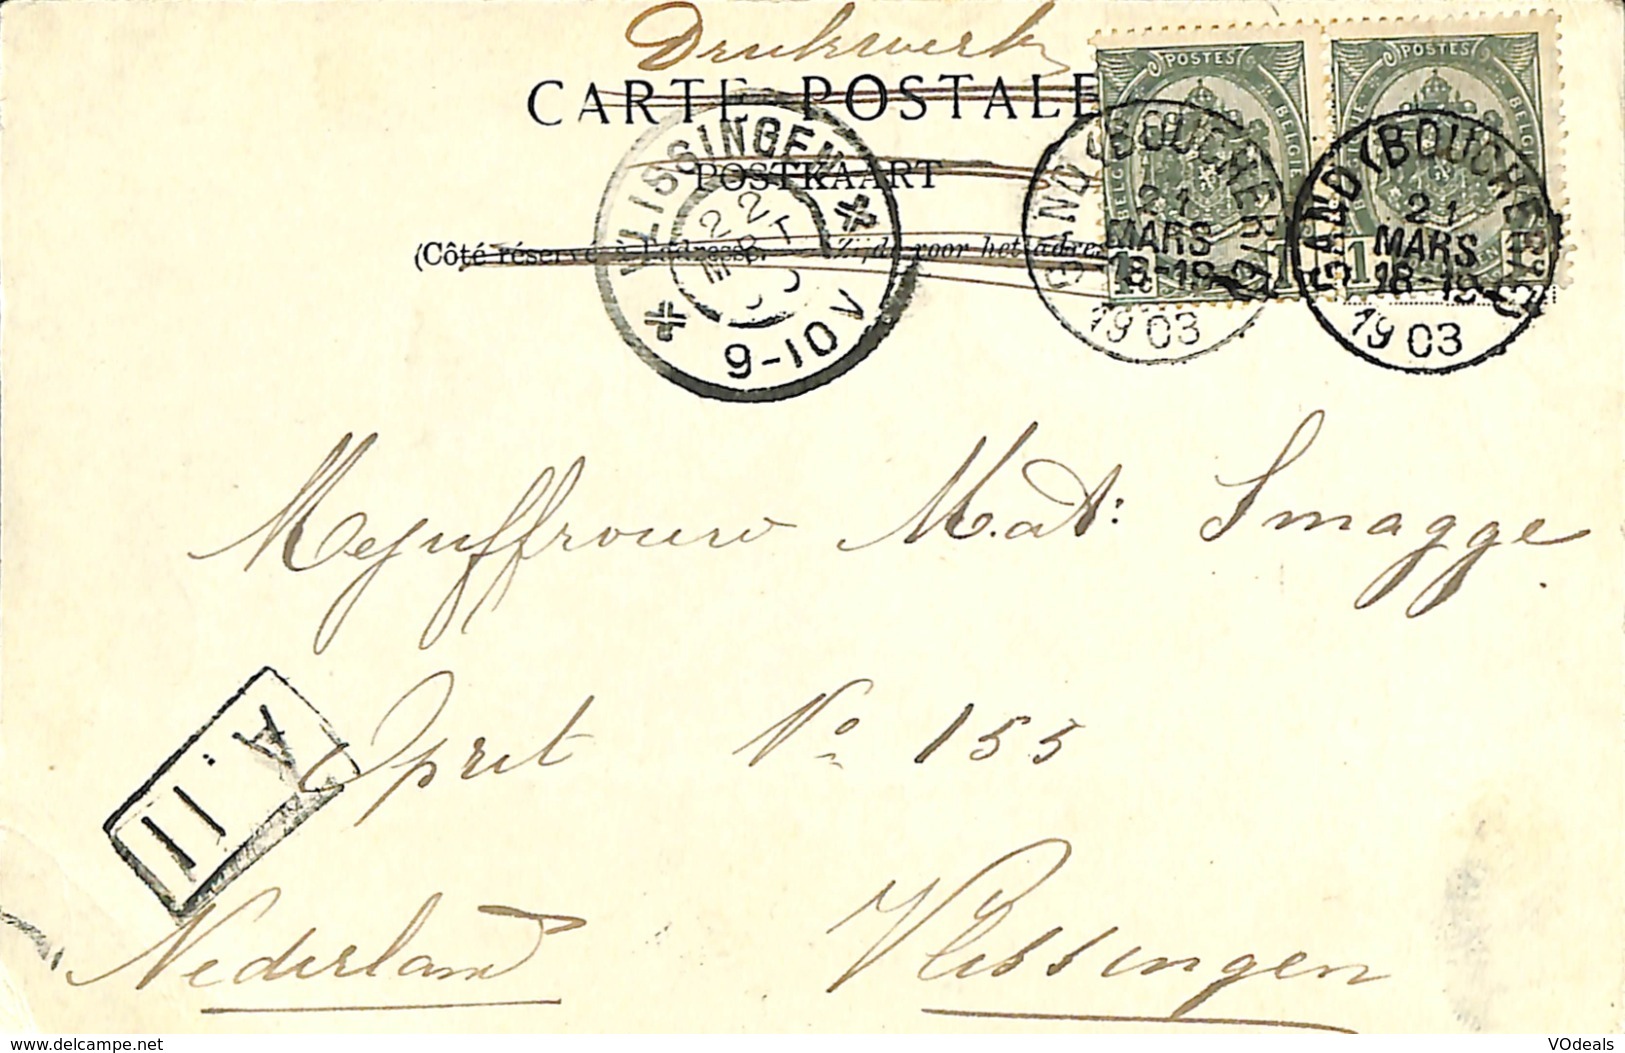 Drukwerk
CARTE POSTALE
POSTKAART
(Côté réservé à l'adresse. Zijde voor het adres
VLISSINGEN
22
MRT
03
9-10V
POSTES
BELGIQUE BELGIE
1c
POSTES
BELGIQUE BELGIE
1
GAND (BOUCHERIE)
21
MARS
18-19
1903
GAND (BOUCHERIE)
21
MARS
18-19
1903
Mejuffrouw Mat: Smagge
Opril No 155
A. II
Nederland Vlissingen
www.delcampe.net
VOdeals